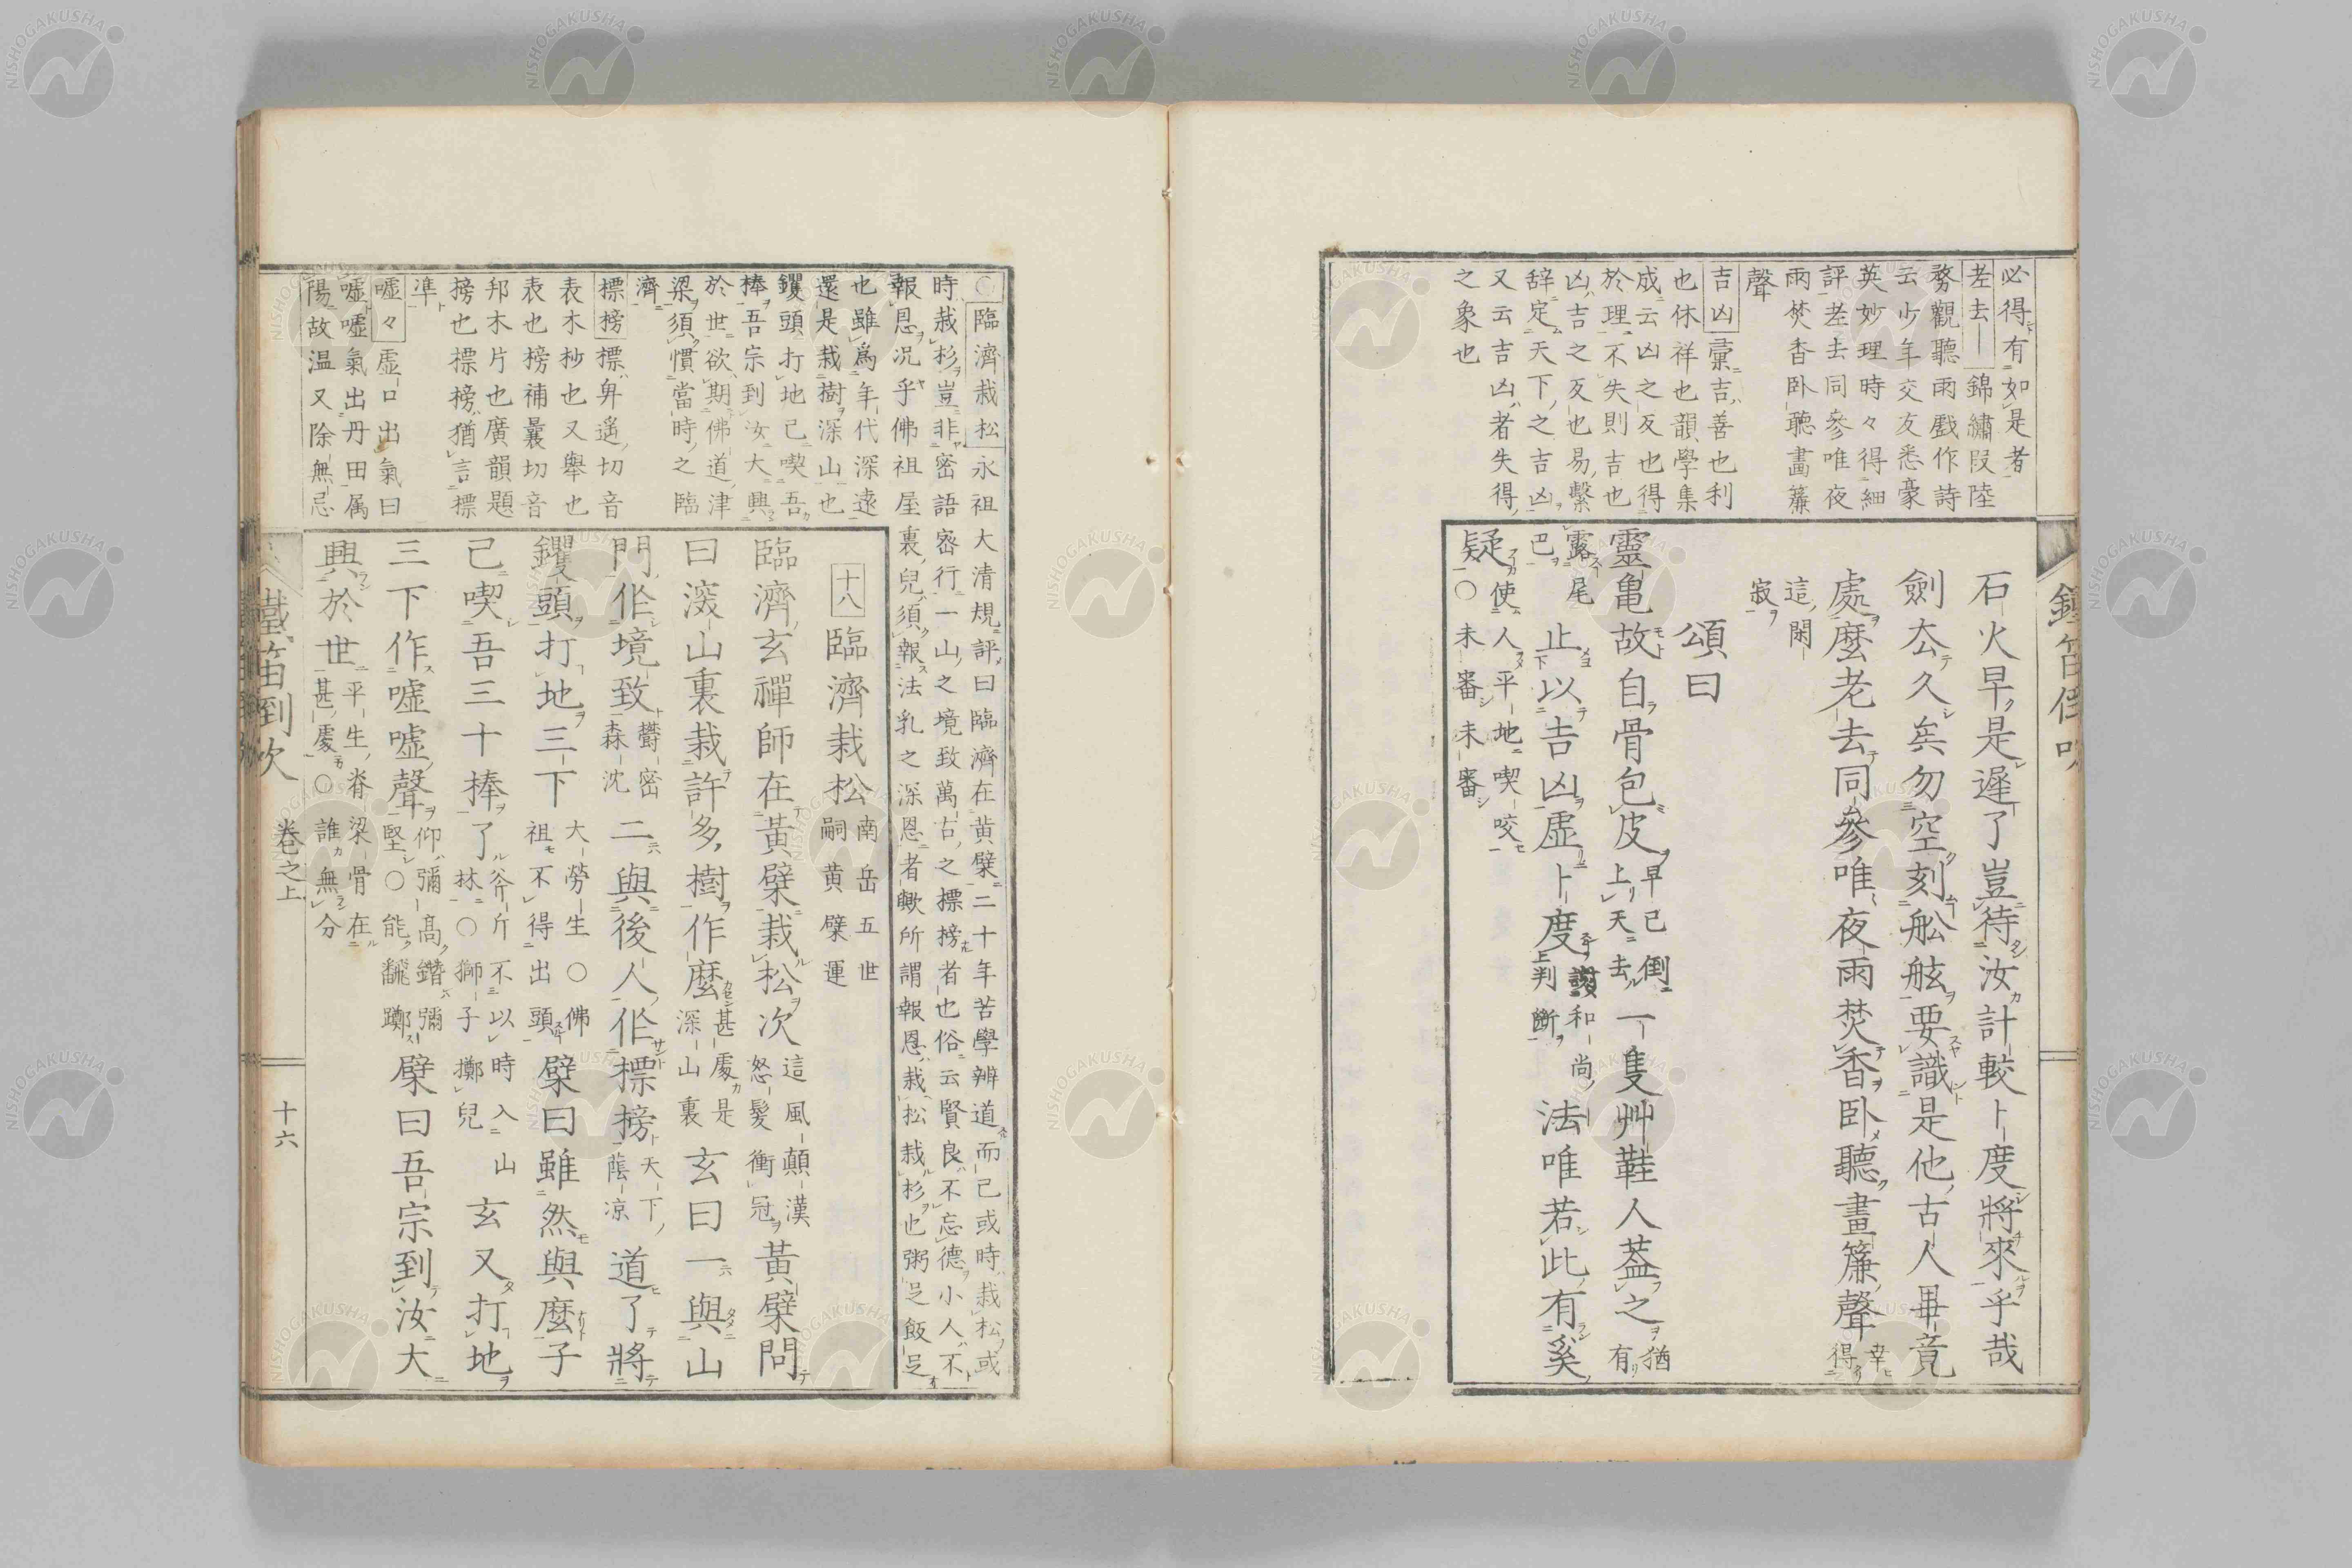 必得有如是者
差去― 錦繡段陸
務觀聽雨戲作詩
云少年交友悉豪
英妙理時々得細
評差去同參唯夜
雨焚香臥聽畫簾
聲
吉凶 彙吉善也利
也休祥也韻學集
成云凶之反也得
於理不失則吉也
凶吉之反也易繫
辞定天下之吉凶
又云吉凶者失得
之象也
石火早是遲了豈待汝計較卜度將來乎哉
劍去久矣勿空刻舩舷要識是他古人畢竟
處麼老去同參唯夜雨焚香臥聽畫簾聲 幸得
這閑
寂
頌曰
靈亀故自骨包皮 早已倒上天去 一隻艸鞋人蓋之 猶有
露尾
巴 止以吉凶虛卜度 謾和尚判斷 法唯若此有奚
疑 使人平地喫咬○未審未審
○臨濟栽松 永祖大清規評曰臨濟在黄檗二十年苦學辨道而已或時栽松或
時栽杉豈非密語密行一山之境致萬古之標榜者也俗云賢良不忘德小人不
報恩况乎佛祖屋裏兒須報法乳之深恩者歟所謂報恩栽松栽杉也粥足飯足
也雖爲年代深遠
還是栽樹深山也
钁頭打地已喫吾
棒吾宗到汝大興
於世欲期佛道津
梁須慣當時之臨
濟
標榜 標卑遙切音
表木杪也又舉也
表也榜補曩切音
邦木片也廣韻題
榜也標榜猶言標
準
噓々 虛口出氣曰
噓噓氣出丹田属
陽故温又除無忌
十八 臨濟栽松 南岳五世嗣黄檗運
臨濟玄禪師在黃檗栽松次 這風顛漢怒髮衝冠 黃檗問
曰深山裏栽許多樹作麼 甚處是深山裏 玄曰一與山
門作境致 欝密森沈 二與後人作標榜 天下蔭凉 道了將
钁頭打地三下 大勞生○佛祖不得出頭 檗曰雖然與麼子
已喫吾三十棒了 斧斤不以時入山林○獅子擲兒 玄又打地
三下作噓噓聲 仰彌高鑚彌堅○能翻躑 檗曰吾宗到汝大
興於世 平生脊梁骨在甚處○誰無分
鐵笛倒吹
卷之上
十六